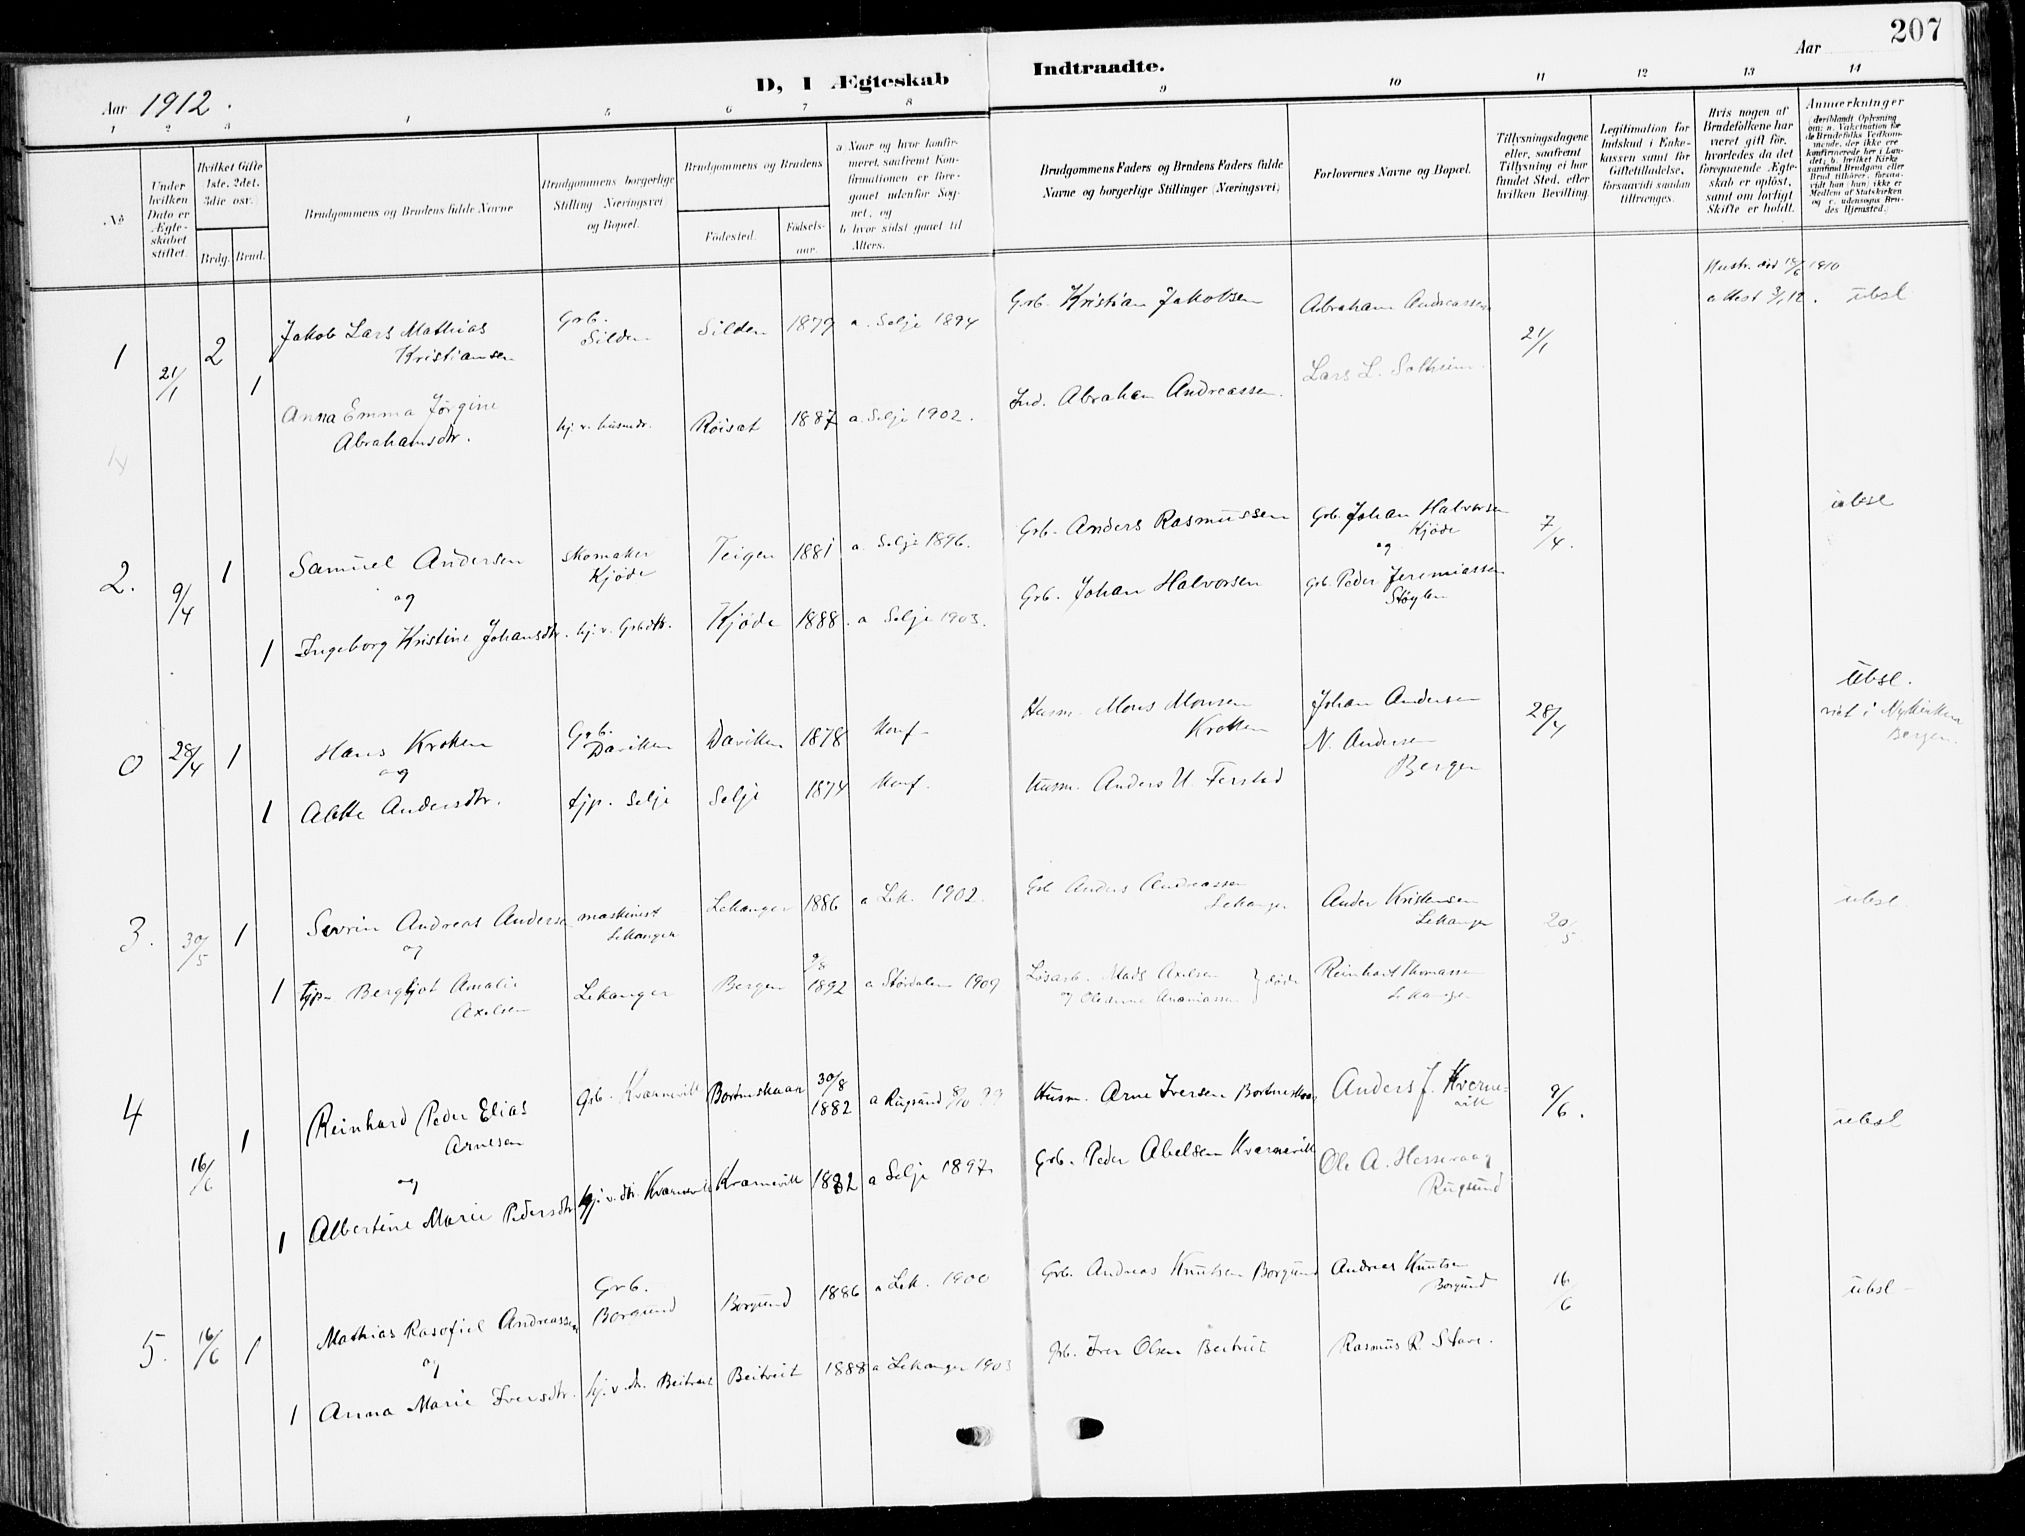 207
Aar 1912.
D, I Ægteskab Indtraadte.
Aar
1 2 3 4 5 6 7 8 9 10 11 12 13 14
No
Under hvilken Dato er Ægteskabet stiftet.
Hvilket Gifte 1ste, 2det, 3die osv.
Brdg. Brud.
Brudgommens og Brudens fulde Navne
Brudgommens borgerlige Stilling Næringsvei og Bopæl.
Brudgommens og Brudens
Fødested.
Fødselsaar.
a Naar og hvor konfirmeret, saafremt Konfirmationen er foregaaet udenfor Sognet, og
b hvor sidst gaaet til Alters.
Brudgommens Faders og Brudens Faders fulde Navne og borgerlige Stillinger (Næringsvei)
Forlovernes Navne og Bopæl.
Tillysningsdagene eller, saafremt Tillysning ei har fundet Sted, efter hvilken Bevilling.
Legitimation for Indskud i Enkekassen samt for Giftetilladelse, forsaavidt saadan tiltrænges.
Hvis nogen af Brudefolkene har været gift før, hvorledes da det foregaaende Ægteskab er opløst, samt om lovligt Skifte er holdt.
Anmerkninger
(deriblandt Oplysning om: a. Vakcination for de Brudefolks Vedkommende, der ikke ere konfirmerede her i Landet; b. hvilket Kirkesamfund Brudgom eller Brud tilhører, forsaavidt han (hun) ikke er Medlem af Statskirken og c. udensogns Brudes Hjemsted.)
1 21/1 2 Jakob Lars Mathias Kristiansen Grb. Silden Silden 1879 a. Selje 1894 Grb. Kristian Jakobsen Abraham Andreassen 21/1 Hustr. død 18/6 1910 attest 3/1 12. ubsl
1 Anna Emma Jørgine Abrahamsdtr. hj. v. husmdr. Røisat 1887 a. Selje 1902. Ind. Abraham Andreassen. Lars L. Solheim.
2. 9/4 1 Samuel Andersen skomaker Kjøde Teigen 1881 a. Selje 1896. Grb. Anders Rasmussen Grb. Johan Halvorsen Kjøde 7/4. ubsl
og og
1 Ingeborg Kristine Johansdtr. hj. v. Grbdtr. Kjøde 1888. a Selje 1903. Grb. Johan Halvorsen Grb. Peder Jeremiassen Støylen
0 28/4 1 Hans Kroken Grb. Daviken Daviken 1878 Konf. Husm. Mons Monsen Krokken Johan Andersen 28/4 ubsl. viet i Nykirken Bergen.
og N. Andersen Bergen
1 Andersdtr. tjp. Selje Selje 1874 Konf. Husm. Anders U. Ferstad
3. 30/5 1 Sevrin Andreas Andersen maskinist Lekanger Lekanger 1886 a Lek. 1902. Grb Anders Andreassen Lekanger Ander Kristensen Lekanger 20/5. ubsl.
og
1 tjp. Bergljot Amalie Axelsen Lekanger Bergen 1892 a Størdalen 1909 Løsarb. Mads Axelsen og Ananiassen døde Reinhart Thomassen Lekanger
4 16/6 1 Reinhard Peder Elias Arnesen Grb. Kvarnevik Bortneskaar 30/8 1882 a Rugsund Husm. Arne Iversen Bortneskaar Anders J. Kvernevik 9/6. ubsl
og
1 Albertine Marie Pedersdtr hj. v. dtr. Kvarnevik Kvarnevik 1882 a Selje 1897. Grb. Peder Abelsen Kvarnevik Ole A. Hessevaag Rugsund
5. 16/6 1 Mathias Rasofiel Andreassen Grb. Borgund Borgund 1886 a Lek. 1900 Grb. Andreas Knutsen Borgund Andreas Knutsen Borgund 16/6 ubsl
og
1 Anna Marie Iversdtr. hj. v. dtr. Beitveit Beitveit 1888 a Lekanger 1903 Grb. Iver Olsen Beitveit Rasmus R. Stave.